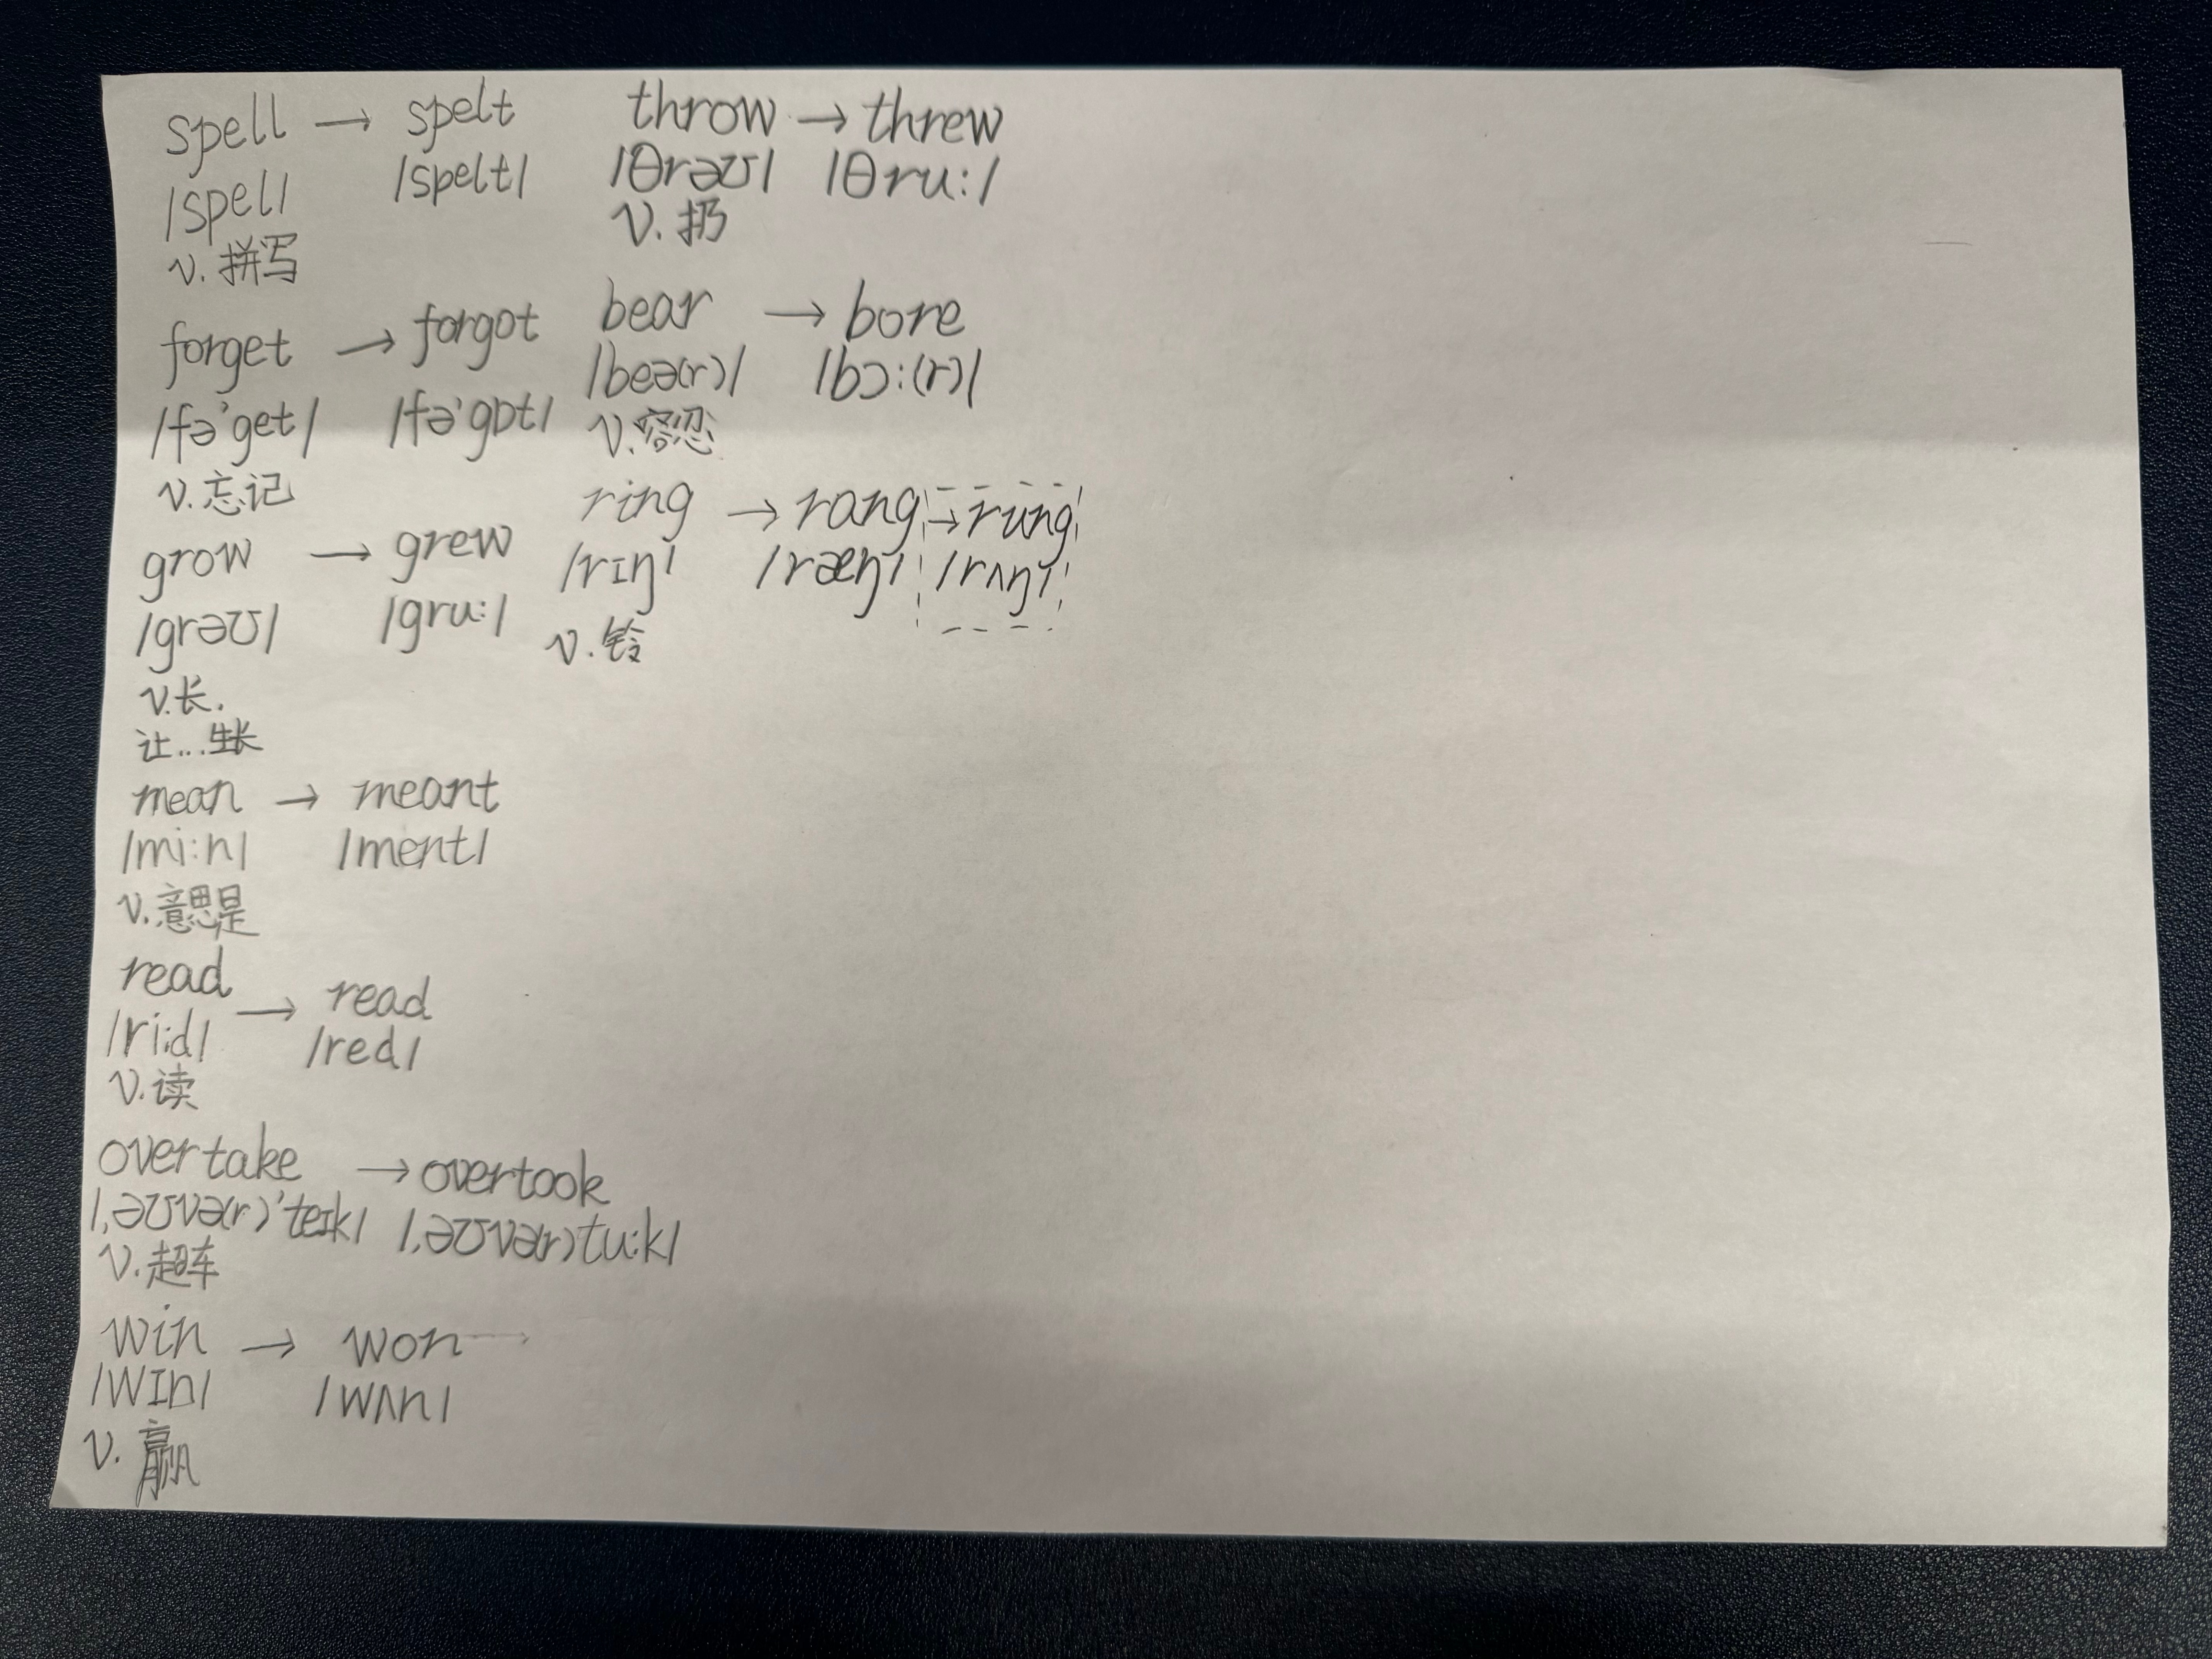 spell → spelt
/spel/ /spelt/
v. 拼写
forget → forgot
/fə'get/ /fə'gɒt/
v. 忘记
grow → grew
/grəʊ/ /gru:/
v. 长.
让...生长
mean → meant
/mi:n/ /ment/
v. 意思是
read → read
/ri:d/ /red/
v. 读
overtake → overtook
/ˌəʊvə(r)'teɪk/ /ˌəʊvə(r)tu:k/
v. 超车
win → won →
/wɪn/ /wʌn/
v. 赢
throw → threw
/θrəʊ/ /θru:/
v. 扔
bear → bore
/beə(r)/ /bɔ:(r)/
v. 容忍
ring → rang → rung
/rɪŋ/ /ræŋ/ /rʌŋ/
v. 铃